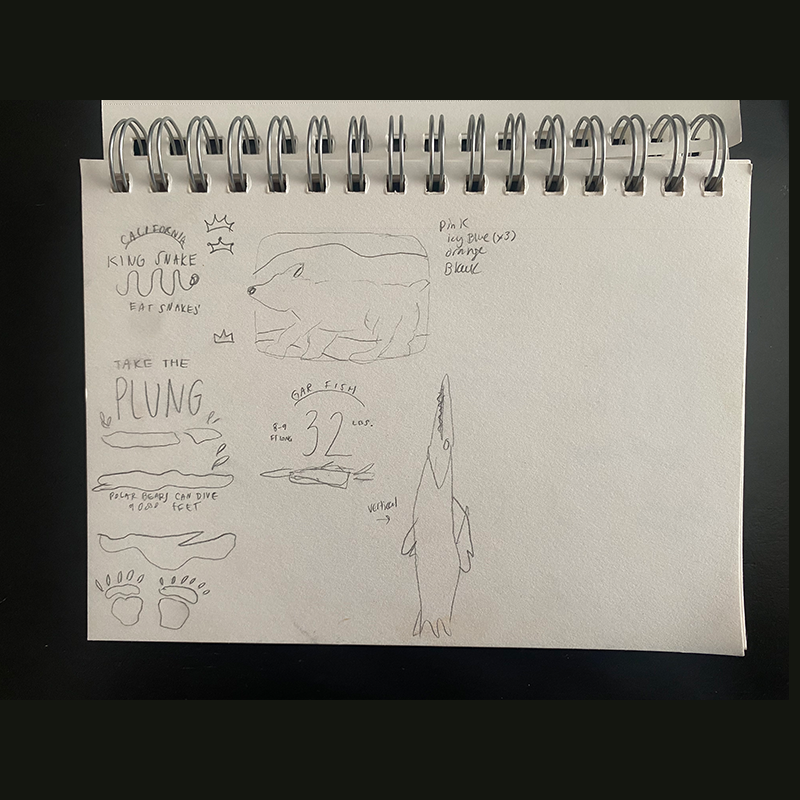 CALIFORNIA
KING SNAKE
EAT SNAKES
TAKE THE
PLUNG
POLAR BEARS CAN DIVE
FEET
Pink
icy Blue (x3)
orange
GAR FISH
8-9
FT LONG
32
LBS.
vertical